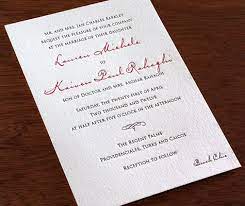 Mr. and Mrs. Ian Charles Barkley
request the pleasure of your company
at the marriage of their daughter
Lauren Michele
to
Kaivon Paul Rahaghi
son of Doctor and Mrs. Asghar Rahaghi
Saturday, the twenty-first of April
two thousand and twelve
half past five in the afternoon
The Regent Palms
Providenciales, Turks and Caicos
Reception to follow
Beach Chic